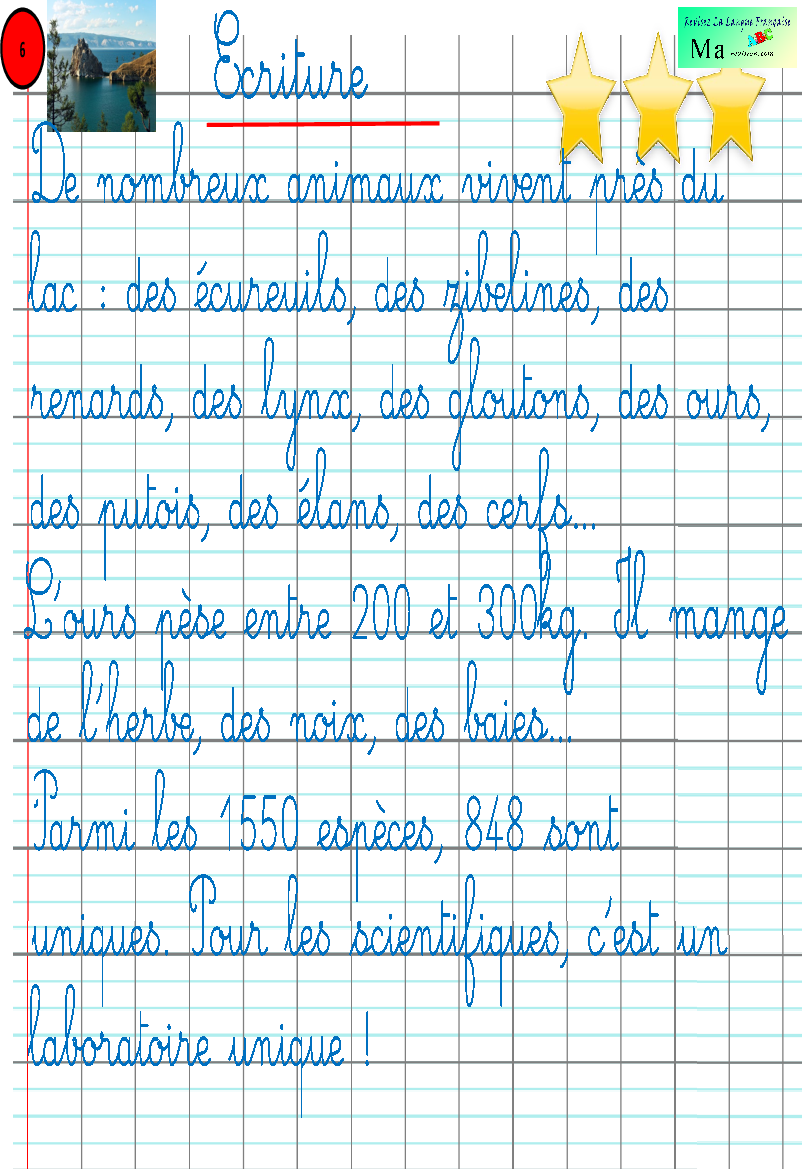 6
Ecriture
Revisez La Langue Française
ABC
Ma
De nombreux animaux vivent près du
lac : des écureuils, des zibelines, des
renards, des lynx, des gloutons, des ours,
des putois, des élans, des cerfs...
L'ours pèse entre 200 et 300kg. Il mange
de l'herbe, des noix, des baies...
Parmi les 1550 espèces, 848 sont
uniques. Pour les scientifiques, c'est un
laboratoire unique !